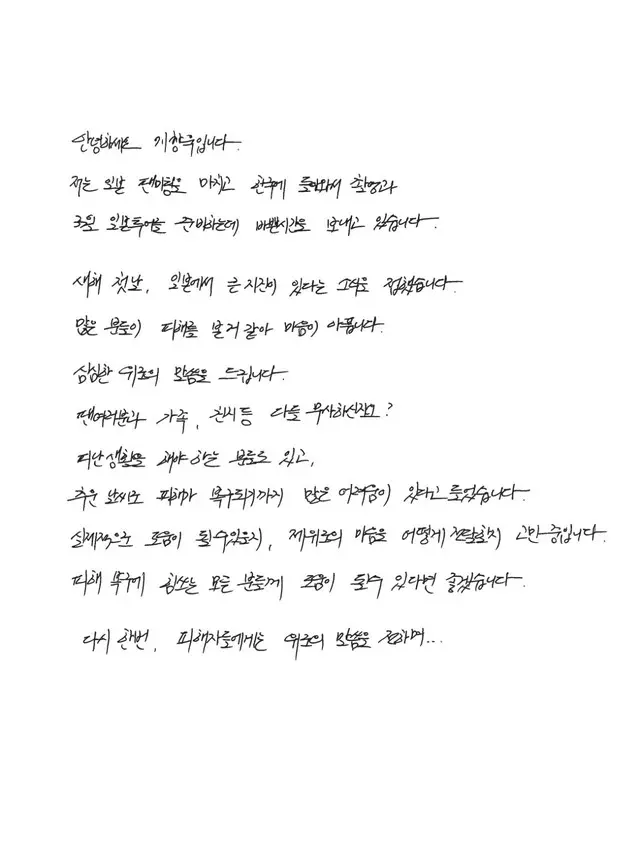 안녕하세요 지창욱입니다.
저는 일본 팬미팅을 마치고 한국에 돌아와서 촬영과
3월 일본투어를 준비하는데 바쁜시간을 보내고 있습니다.
새해 첫날, 일본에서 큰 지진이 있다는 소식을 접했습니다.
많은 분들이 피해를 본 거 같아 마음이 아픕니다.
심심한 위로의 말씀을 드립니다.
팬여러분과 가족, 친지 등 다들 무사하신지요?
피난생활을 해야 하는 분들도 있고,
추운 날씨로 피해가 복구되기까지 많은 어려움이 있다고 들었습니다.
실제적으로 도움이 될 수 있을지, 제 위로의 마음을 어떻게 전달할지 고민 중입니다.
피해 복구에 힘쓰는 모든 분들께 도움이 될 수 있다면 좋겠습니다.
다시 한번, 피해자들에게는 위로의 말씀을 전하며...